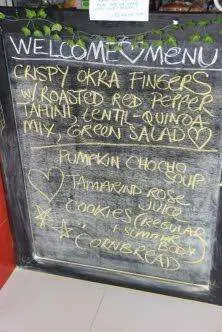 WELCOME♡MENU
CRISPY OKRA FINGERS
W/ROASTED RED PEPPER
TAHINI, LENTIL-QUINOA
MIX, GREEN SALAD♡
PUMPKIN CHOCHO
SOUP
TAMARIND ROSE
JUICE
COOKIES (REGULAR
CORNBREAD